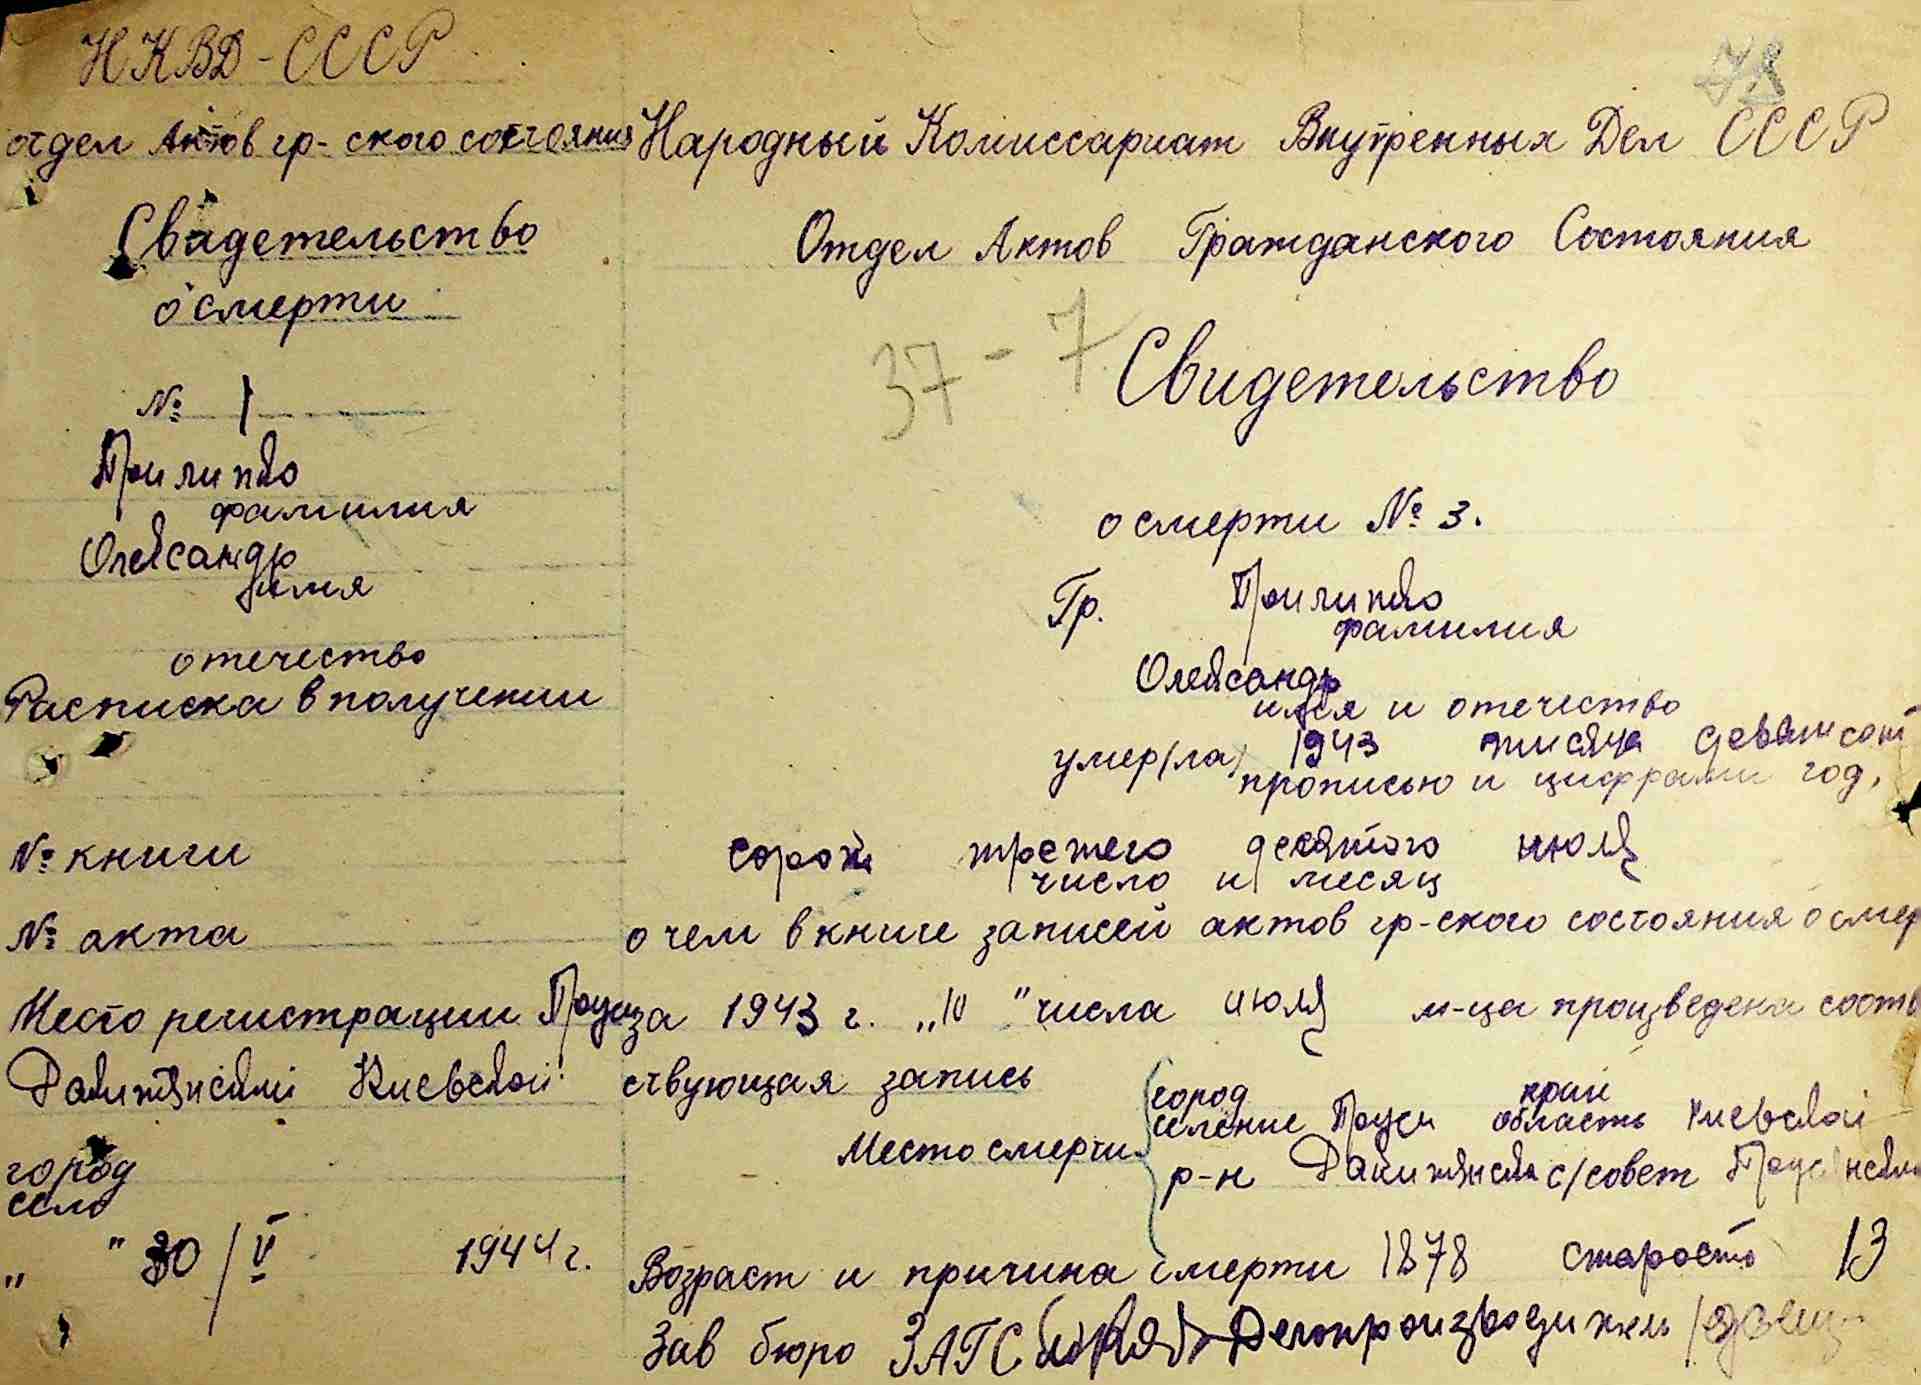 НКВД-СССР
отдел Актов гр-ского состояния
Свидетельство
о смерти
№ 1
Прилипко
фамилия
Олександр
имя
отечество
Расписка в получении
№ книги
№ акта
Место регистрации Пруси
Ракитянский Киевской
город
село
" " 30/V 1944 г.
78
Народный Комиссариат Внутренных Дел СССР
Отдел Актов Гражданского Состояния
37-7
Свидетельство
о смерти № 3.
Гр. Прилипко
фамилия
Олександр
имя и отечество
умер(ла) 1943 тисяча девятсот
прописью и цифрами год,
сорок третего десятого июля
число и месяц
о чем в книге записей актов гр-ского состояния о смер
за 1943 г. „10" числа июля м-ца произведена соотв
ствующая запись
Место смерти
город край
селение Пруси область Киевской
р-н с/совет
Возраст и причина смерти 1878 старость 13
Зав бюро ЗАГС Делопроизводитель